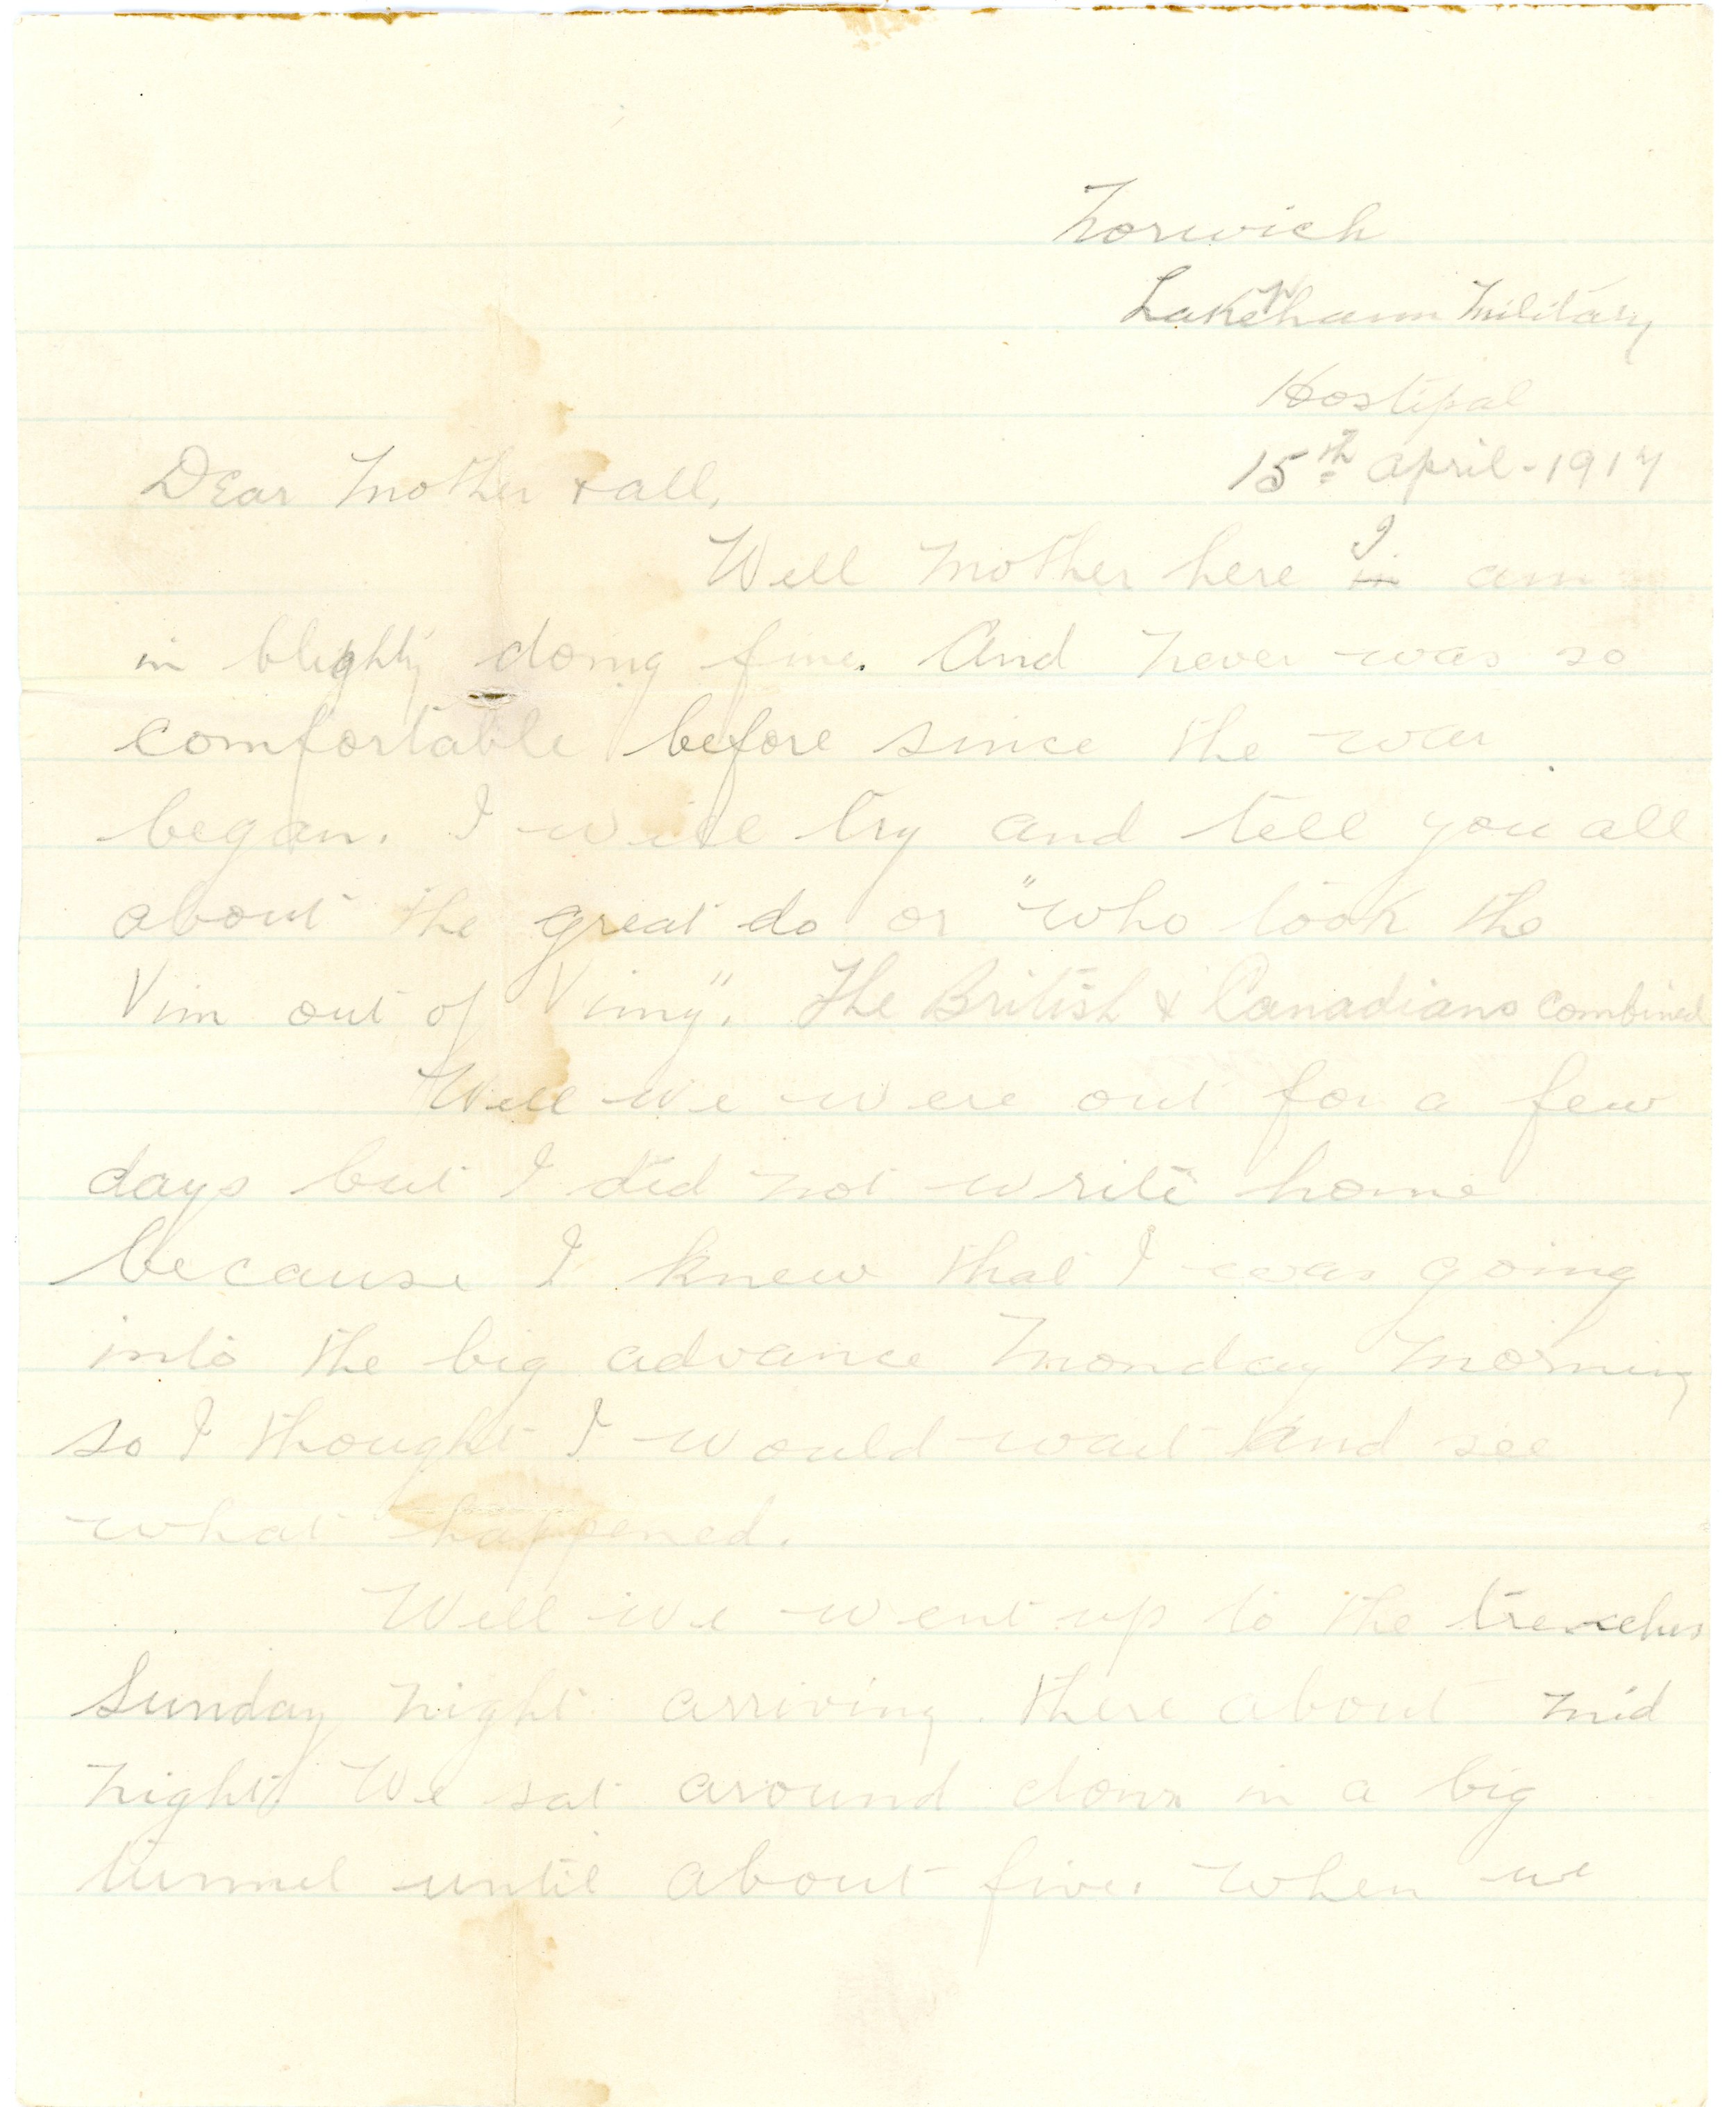 Norwich
Lakenham Military
Hostipal
15th April - 1917
Dear Mother & all,
Well Mother here I am
in blighty doing fine. And never was so
comfortable before since the war
began. I will try and tell you all
about the great do or "who took the
Vim out of Vimy". The British & Canadians combined
Well we were out for a few
days but I did not write home
because I knew that I was going
into the big advance Monday morning
so I thought I would wait and see
what happened.
Well we went up to the trenches
Sunday night arriving there about mid
night We sat around down in a big
tunnel until about five. when we